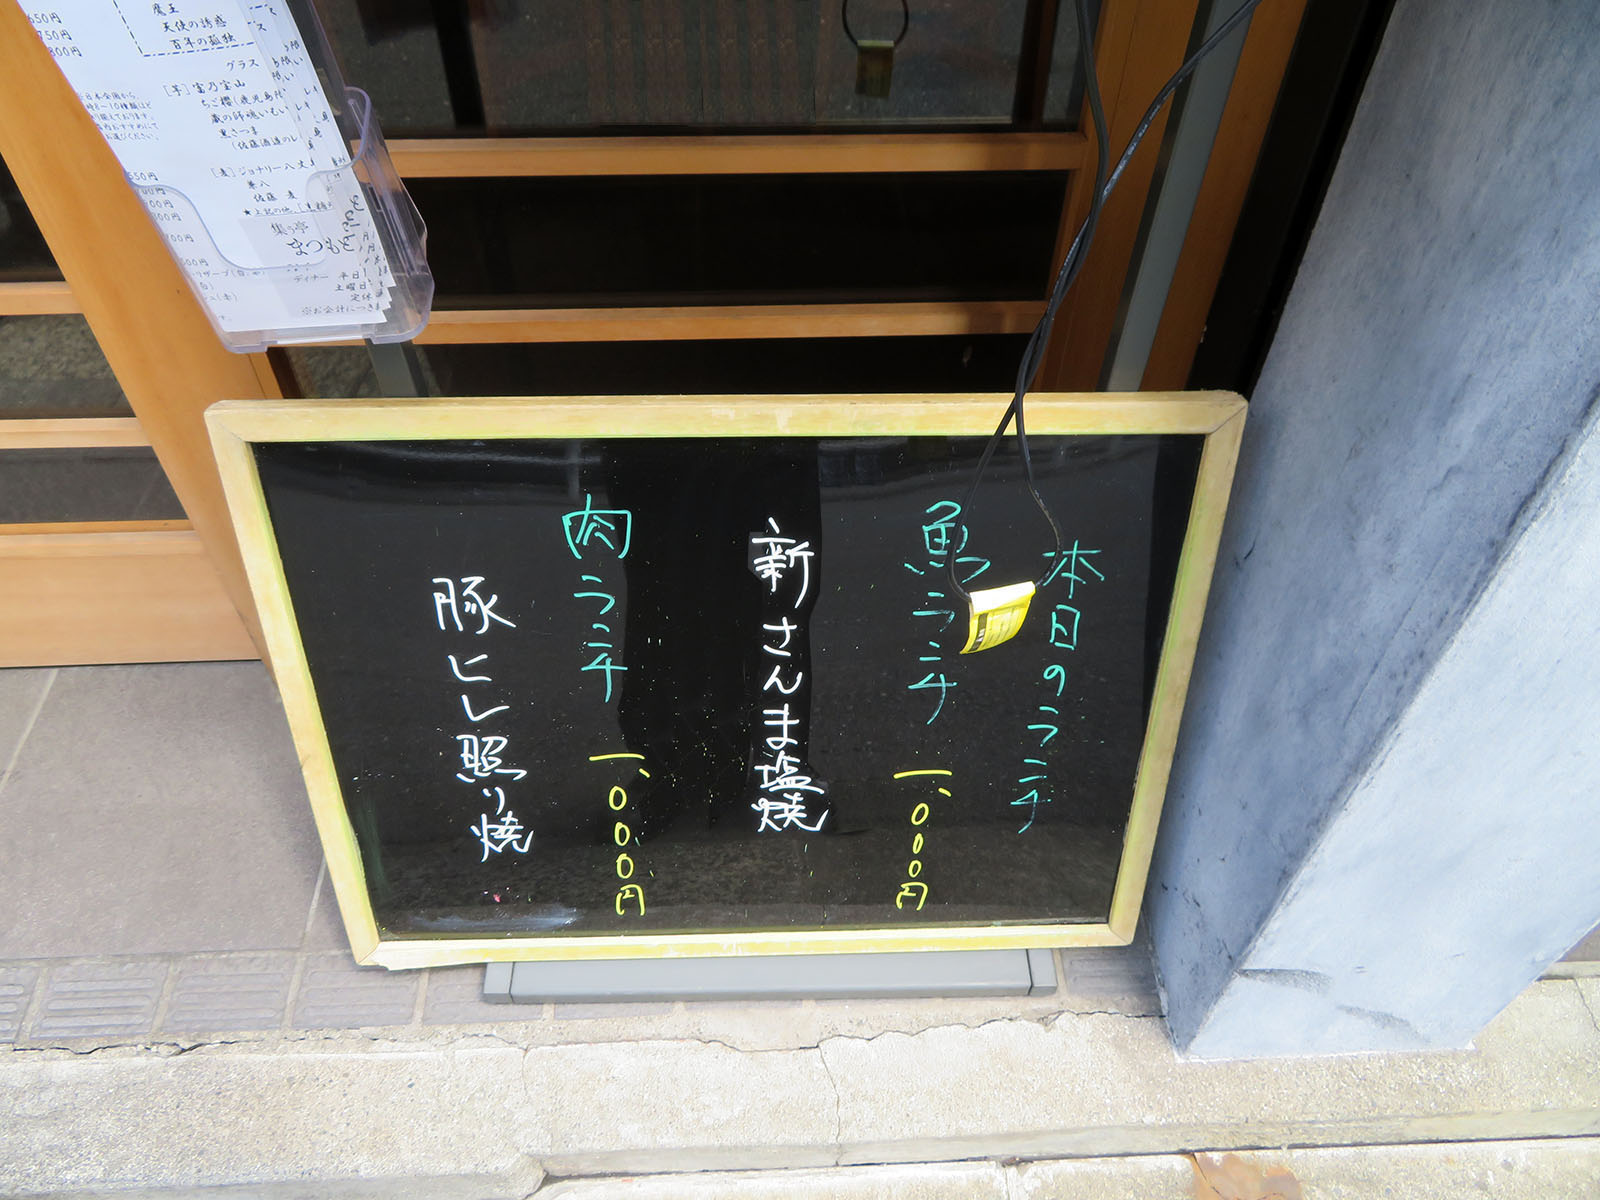 本日のランチ
魚ランチ 一、000円
新さんま塩焼
肉ランチ 一、000円
豚ヒレ照り焼
650円
750円
800円
魔王
天使の誘惑
百年の孤独
グラス
[芋]富乃宝山
ちご櫻(鹿児島限
蔵の師魂いもい
黒さつま
(佐藤酒造のレ
[麦]ジョナリー八丈
兼八
佐藤 麦
集う亭
まつもと
ディナー 平日
土曜日
定休
※お会計につきま